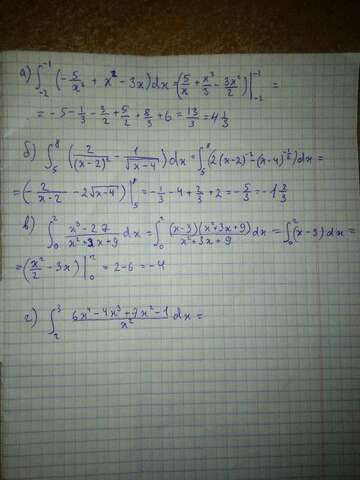 а) ∫₋₂⁻¹ (-5/x² + x² - 3x)dx = (5/x + x³/3 - 3x²/2)|₋₂⁻¹ =
= -5 - 1/3 - 3/2 + 5/2 + 8/3 + 6 = 13/3 = 4 1/3
б) ∫₅⁸ (2/(x-2)² - 1/√(x-4))dx = ∫₅⁸ (2(x-2)⁻² - (x-4)^(-1/2))dx =
= (-2/(x-2) - 2√(x-4))|₅⁸ = -1/3 - 4 + 2/3 + 2 = -5/3 = -1 2/3
в) ∫₀² (x³-27)/(x²+3x+9) dx = ∫₀² (x-3)(x²+3x+9)/(x²+3x+9) dx = ∫₀² (x-3)dx =
= (x²/2 - 3x)|₀² = 2-6 = -4
г) ∫₂³ (6x⁴-4x³+7x²-1)/x² dx =